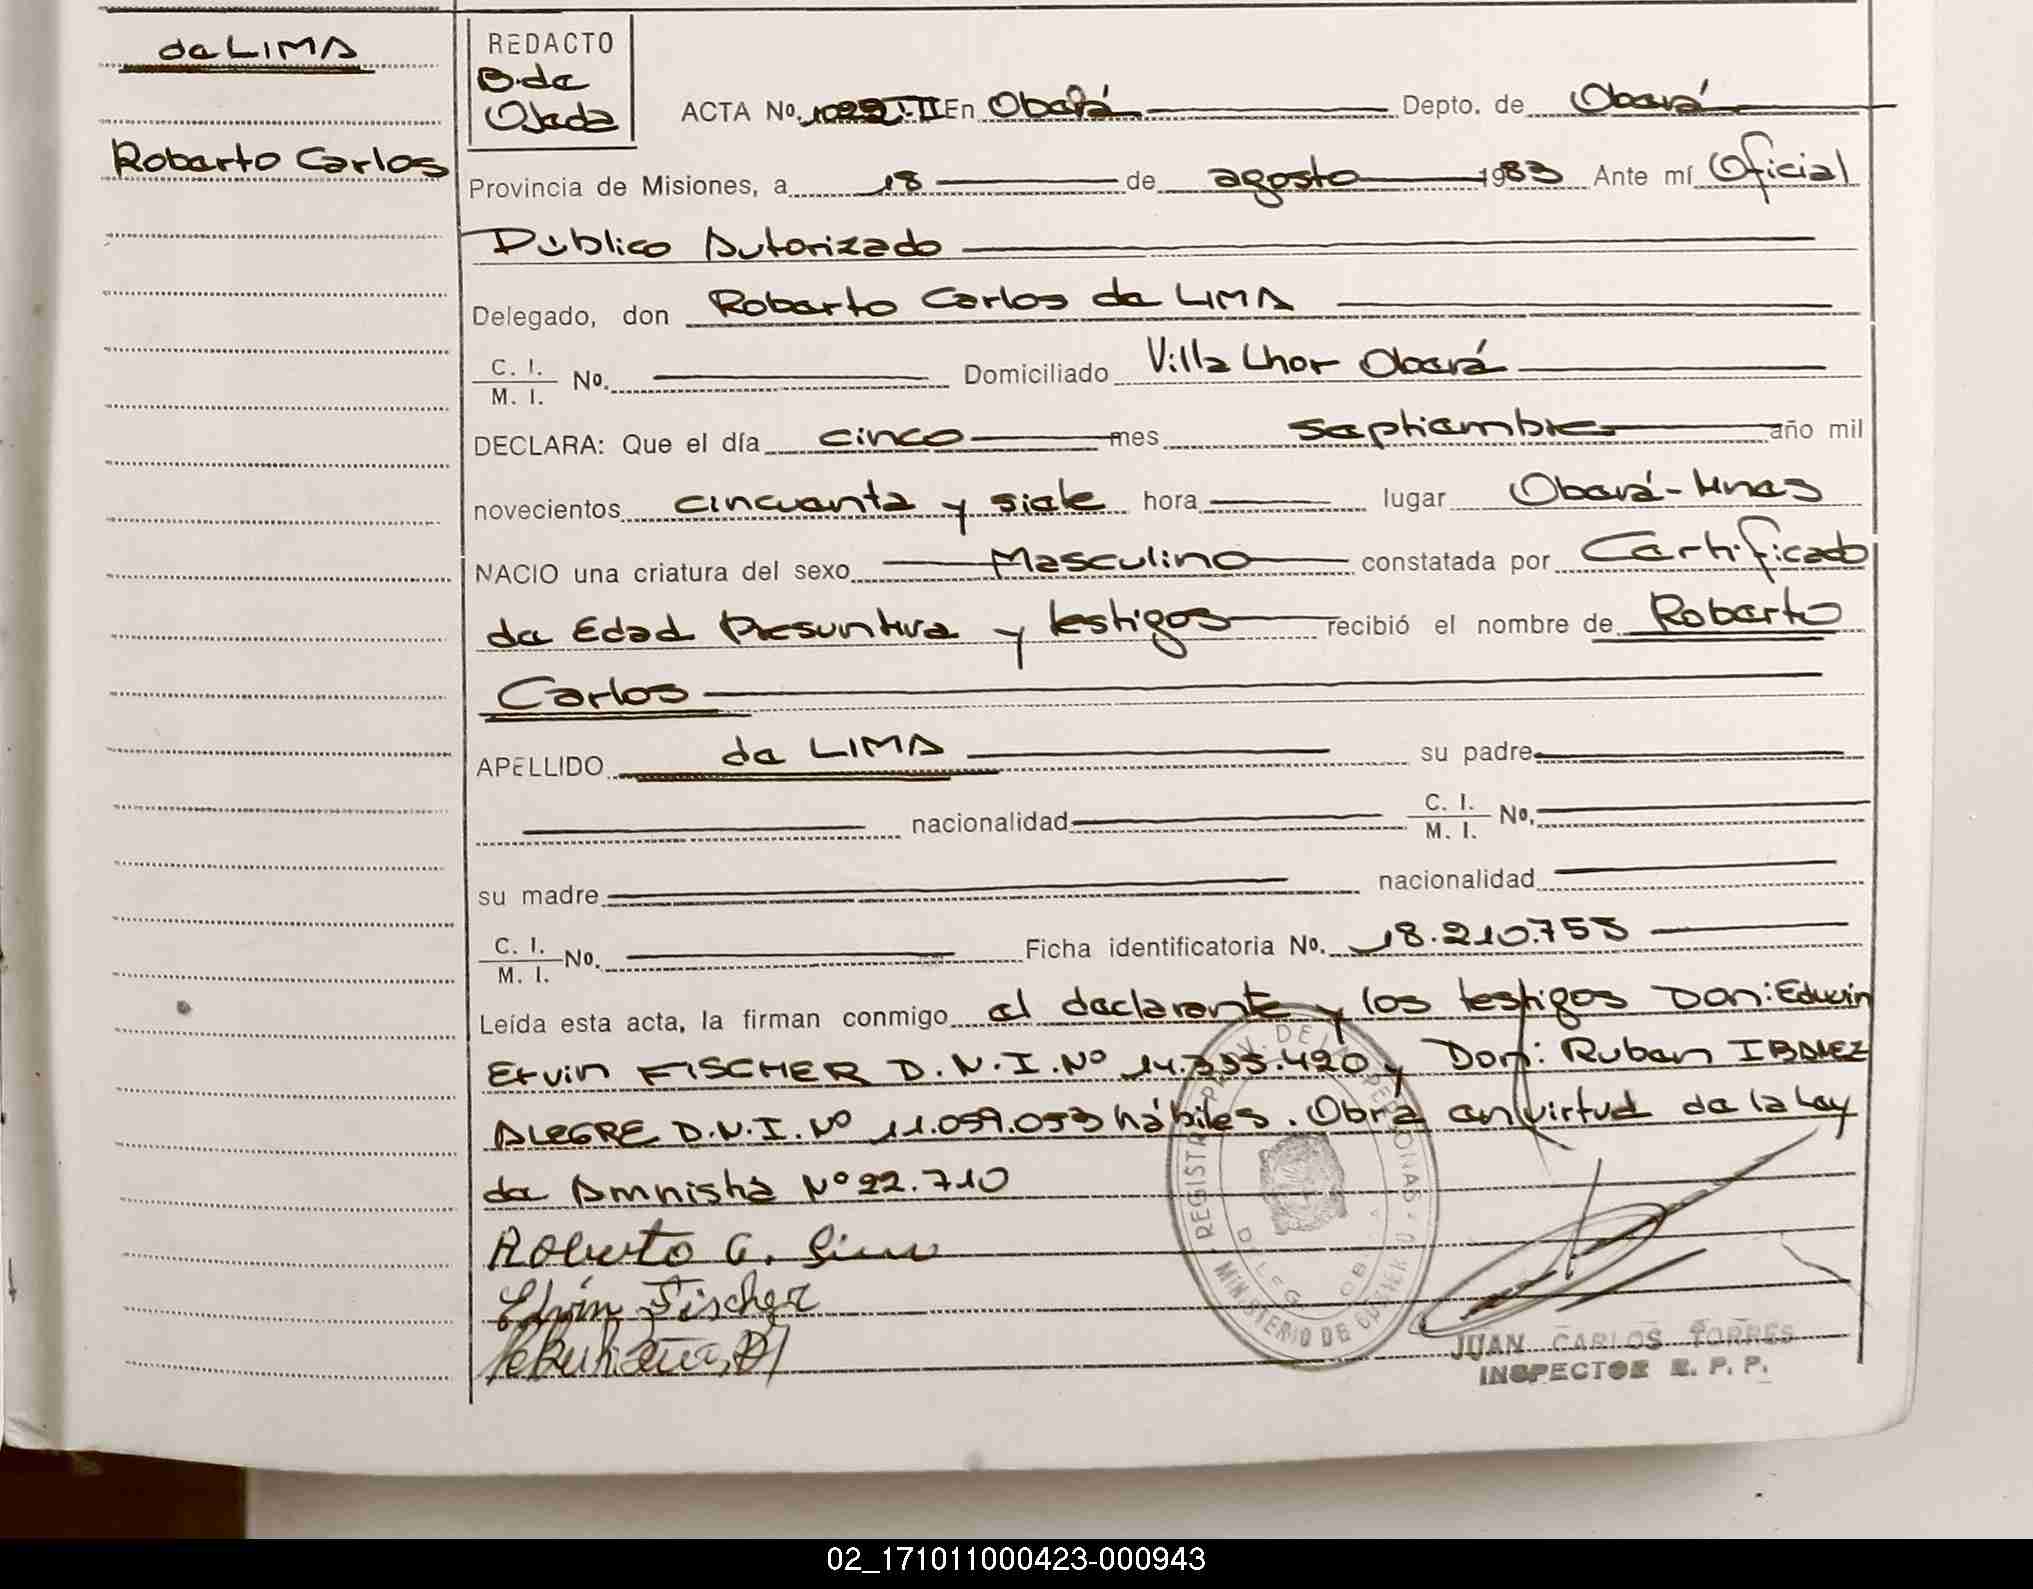 de LIMA
Roberto Carlos
REDACTO
B. de
Ojeda
ACTA No. 1022-II En Oberá Depto. de Oberá
Provincia de Misiones, a 18 de agosto 1983 Ante mí Oficial
Público Autorizado
Delegado, don Roberto Carlos de LIMA
C. I. / M. I. No. Domiciliado Villa Lhor Oberá
DECLARA: Que el día cinco mes septiembre año mil
novecientos cincuenta y siete hora lugar Oberá-Mnes
NACIO una criatura del sexo Masculino constatada por Certificado
de Edad Presuntiva y testigos recibió el nombre de Roberto
Carlos
APELLIDO de LIMA su padre
nacionalidad C. I. / M. I. No.
su madre nacionalidad
C. I. / M. I. No. Ficha identificatoria No. 18.210.755
Leída esta acta, la firman conmigo el declarante y los testigos Don: Edwin
Ervin FISCHER D.N.I.Nº 14.335.420 y Don: Ruben IBAÑEZ
ALEGRE D.N.I.Nº 11.059.053 hábiles. Obra en virtud de la Ley
de Amnistía Nº 22.710
Roberto C. Lima
Edwin Fischer
REGISTRO PROV. DE LAS PERSONAS
MINISTERIO DE GOBIERNO
DELEG. OBERA
JUAN CARLOS TORRES
INSPECTOR R. P. P.
02_171011000423-000943